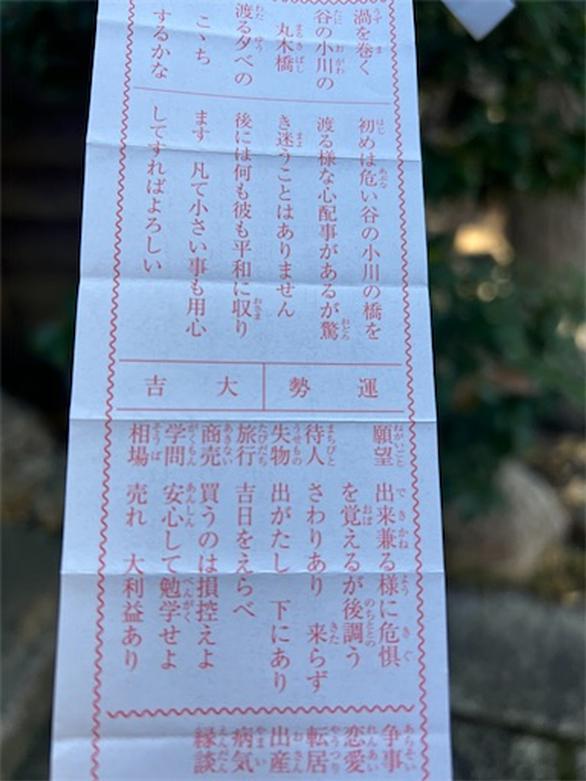 渦を巻く
谷の小川の
丸木橋
渡る夕べの
こゝち
するかな
初めは危い谷の小川の橋を
渡る様な心配事があるが驚
き迷うことはありません
後には何も彼も平和に収り
ます 凡て小さい事も用心
してすればよろしい
運勢 大吉
願望 出来兼る様に危惧
を覚えるが後調う
待人 さわりあり 来らず
失物 出がたし 下にあり
旅行 吉日をえらべ
商売 買うのは損控えよ
学問 安心して勉学せよ
相場 売れ 大利益あり
争事
恋愛
転居
出産
病気
縁談